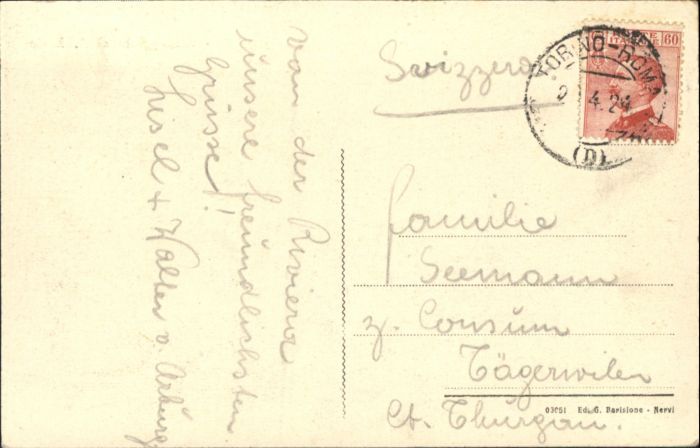 von der Riviera
unsere freundlichsten
Grüsse!
Lisel + Walter v. Arburg
Svizzera
60
TORINO-ROMA
4.24
(D)
Familie
Seemann
z. Consum
Tägerwilen
Ct. Thurgau.
03051 Ed. G. Barisione - Nervi